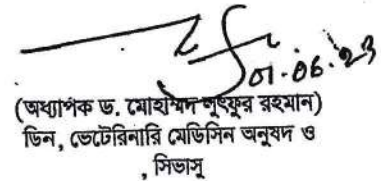 01-06-23
(অধ্যাপক ড. মোহাম্মদ লুৎফুর রহমান)
ডিন, ভেটেরিনারি মেডিসিন অনুষদ ও
, সিভাসু